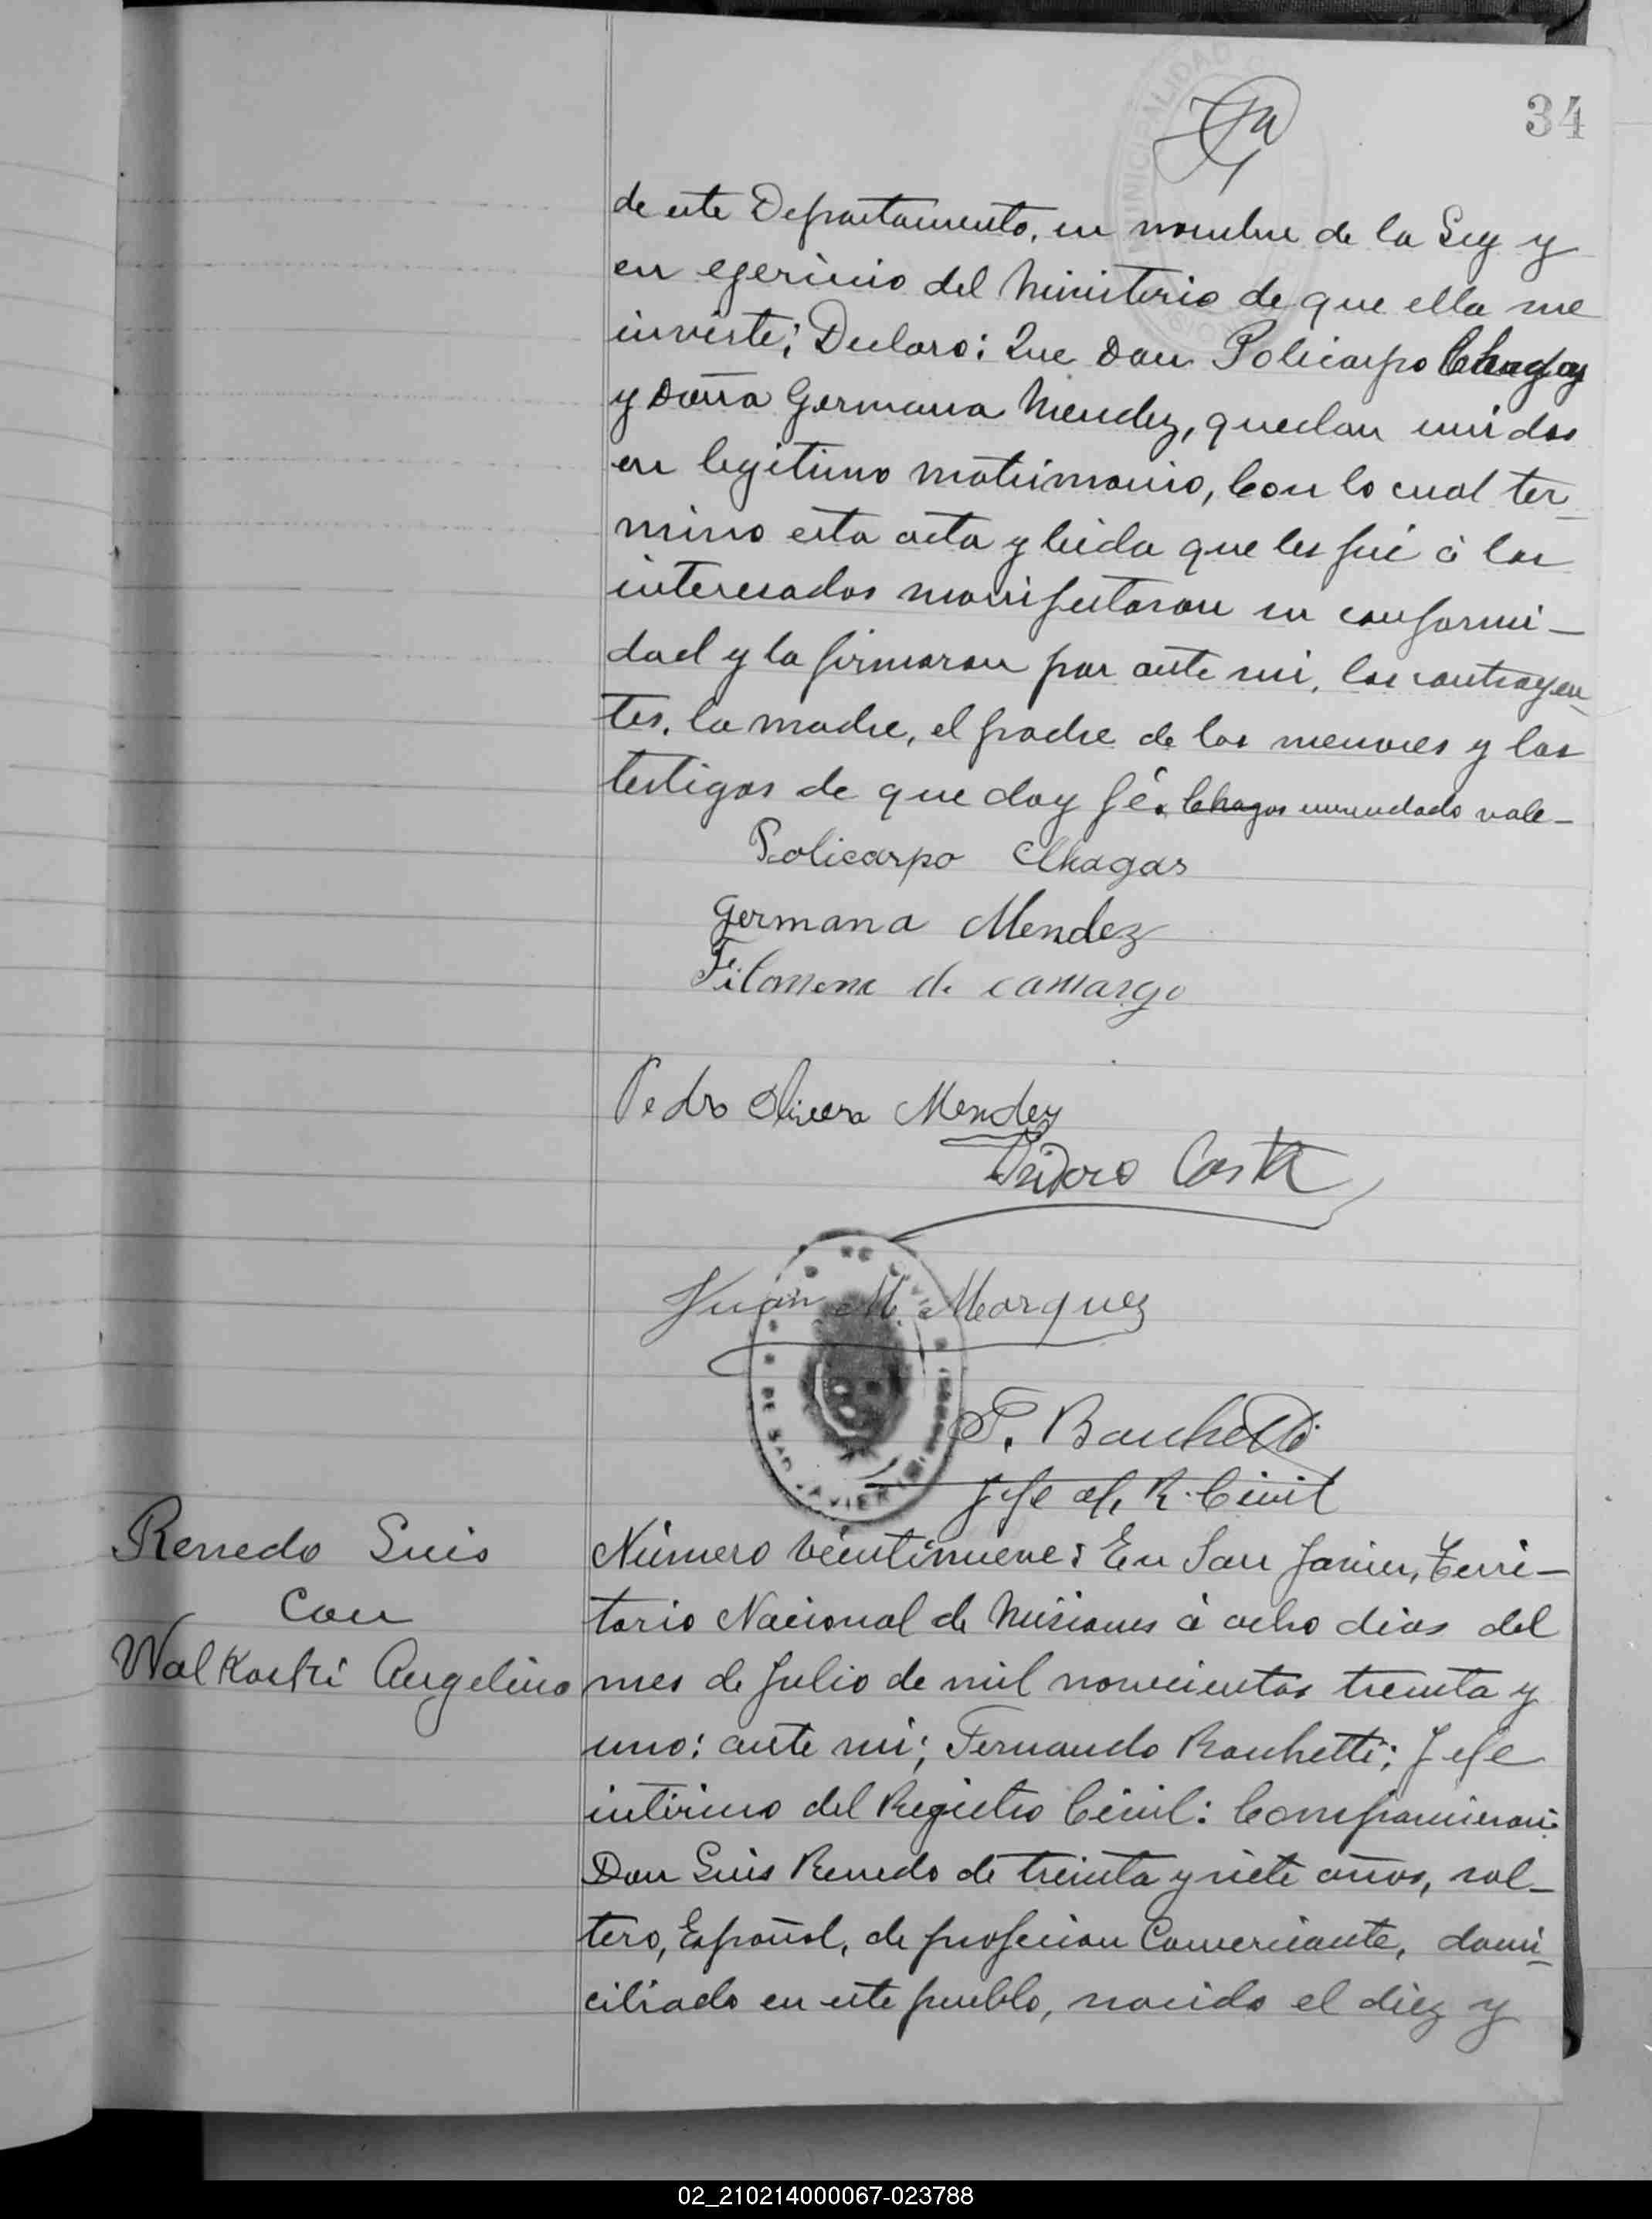 34
de este Departamento, en nombre de la Ley y
en egericio del Ministerio de que ella me
inviste; Declaro: Que Don Policarpo Chagas
y Doña Germana Mendez, quedan unidos
en legitimo matrimonio, Con lo cual ter_
mino esta acta y leida que les fué á los
interesados manifestaron su conformi_
dad y la firmaron por ante mi, los contrayen_
tes, la madre, el padre de los menores y los
testigos de que doy fé. Chagas enmendado vale_
Policarpo Chagas
Germana Mendez
Filomena de camargo
Pedro Olivera Mendez
Isidoro Costa
Juan M. Marquez
DE SAN JAVIER
F. Banchetti
Jefe del R. Civil
Renedo Luis
Con
Walkoski Angelina
Número veintinueve: En San Javier, Terri_
torio Nacional de Misiones á ocho dias del
mes de Julio de mil novecientos treinta y
uno: ante mi; Fernando Banchetti; Jefe
interino del Registro Civil: Comparecieron:
Don Luis Renedo de treinta y siete años, sol_
tero, Español, de profesion Comerciante, domi_
ciliado en este pueblo, nacido el diez y
02_210214000067-023788